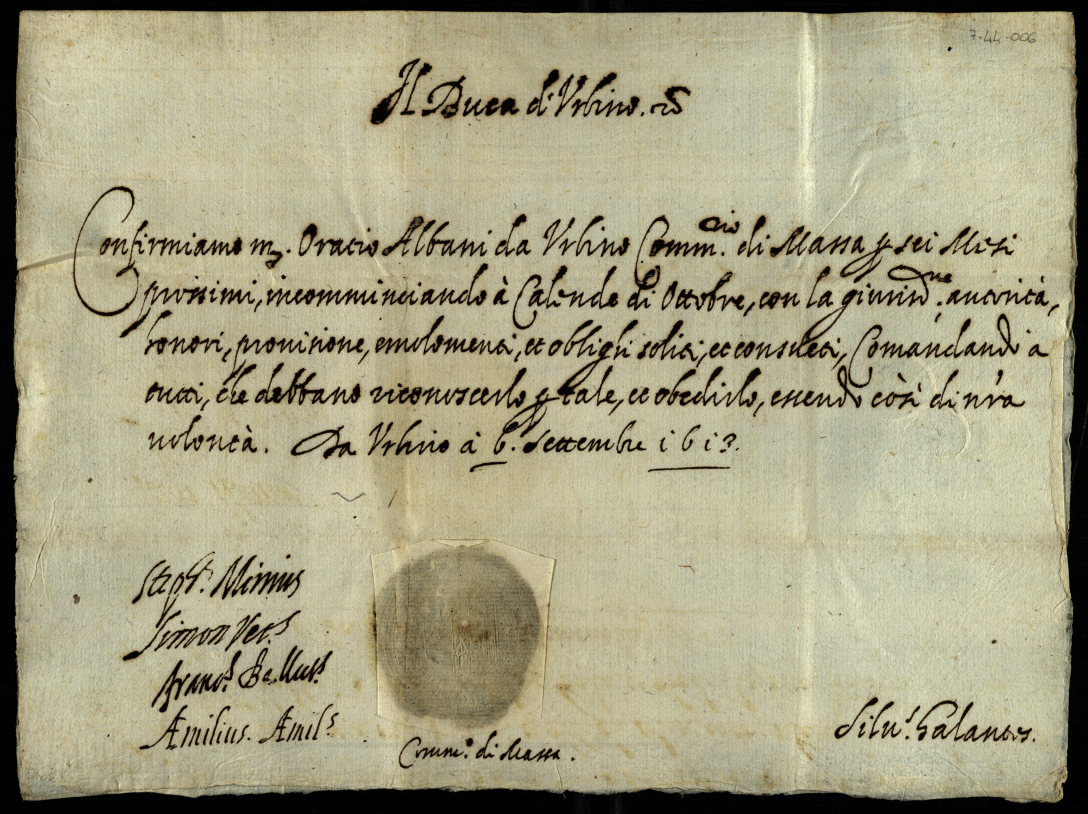 7-44-006
Il Duca d'Urbino. etc
Confirmiamo m. Oratio Albani da Urbino Comm.rio di Massa p sei Mesi
prossimi, incomminciando à Calende di Ottobre, con la giurisd.ne autorità,
honori, provisione, emolomenti, et oblighi soliti, et consueti, Comandando a
tutti, che debbano riconoscerlo p tale, et obedirlo, essendo così di n'ra
volontà. Da Urbino à 6. Settembre 1613.
Simon
Æmilius. Æmil.s
Comm.o di Massa.